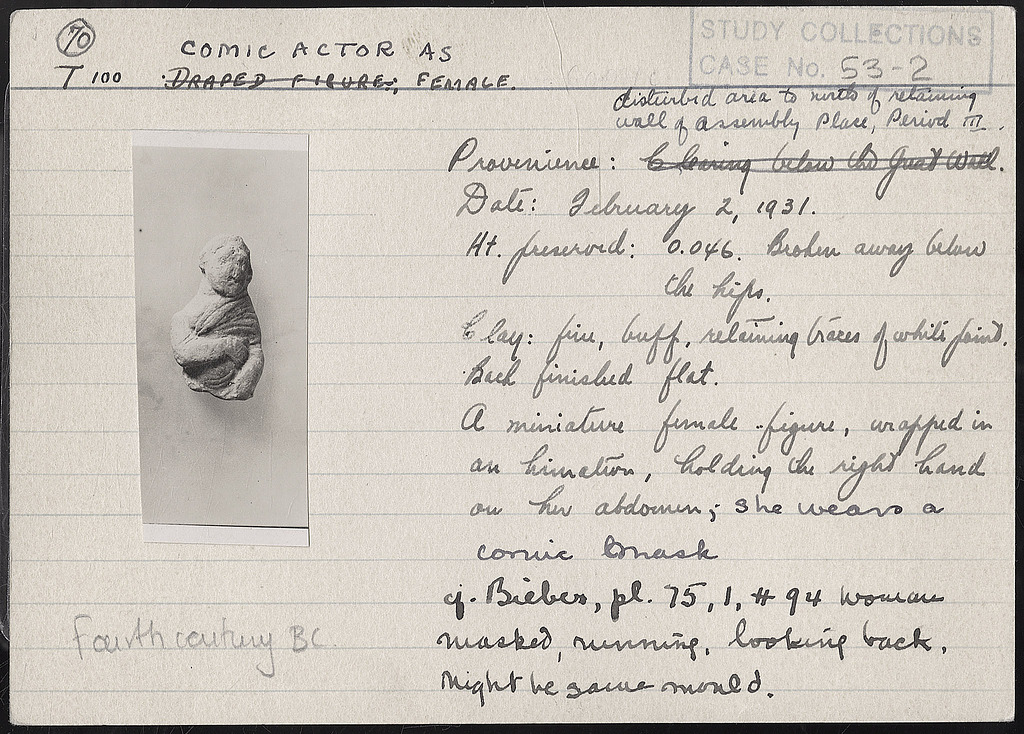 70
STUDY COLLECTIONS
CASE No. 53-2
COMIC ACTOR AS
T 100 DRAPED FIGURE; FEMALE.
disturbed area to north of retaining
wall of Assembly Place, Period III.
Provenience: Clearing below the Great Wall.
Date: February 2, 1931.
Ht. preserved: 0.046. Broken away below
the hips.
Clay: fine, buff, retaining traces of white paint.
Back finished flat.
A miniature female figure, wrapped in
an himation, holding the right hand
on her abdomen; she wears a
comic mask
cf. Bieber, pl. 75, 1, # 94 woman
masked, running, looking back.
Might be same mould.
Fourth century BC.